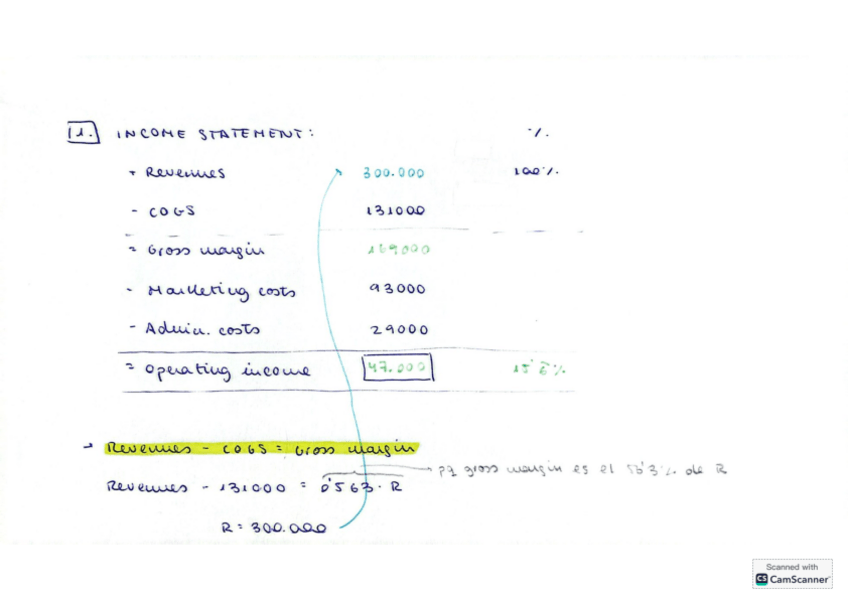 1. INCOME STATEMENT: %.
+ Revenues 300.000 100%.
- COGS 131000
= Gross margin 169000
- Marketing costs 93000
- Admin. costs 29000
= Operating income 47.000 15'6%.
→ Revenues - COGS = Gross margin
Revenues - 131000 = 0'563 · R → pq gross margin es el 56'3% de R
R = 300.000
Scanned with
CS CamScanner